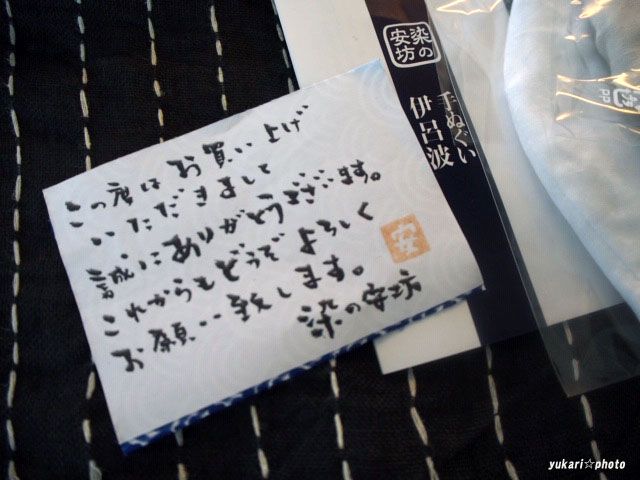 染の
安坊
手ぬぐい
伊呂波
この度は お買い上げ
いただきまして
誠にありがとうございます。
これからもどうぞ よろしく
お願い致します。
染の安坊
安
yukari☆photo